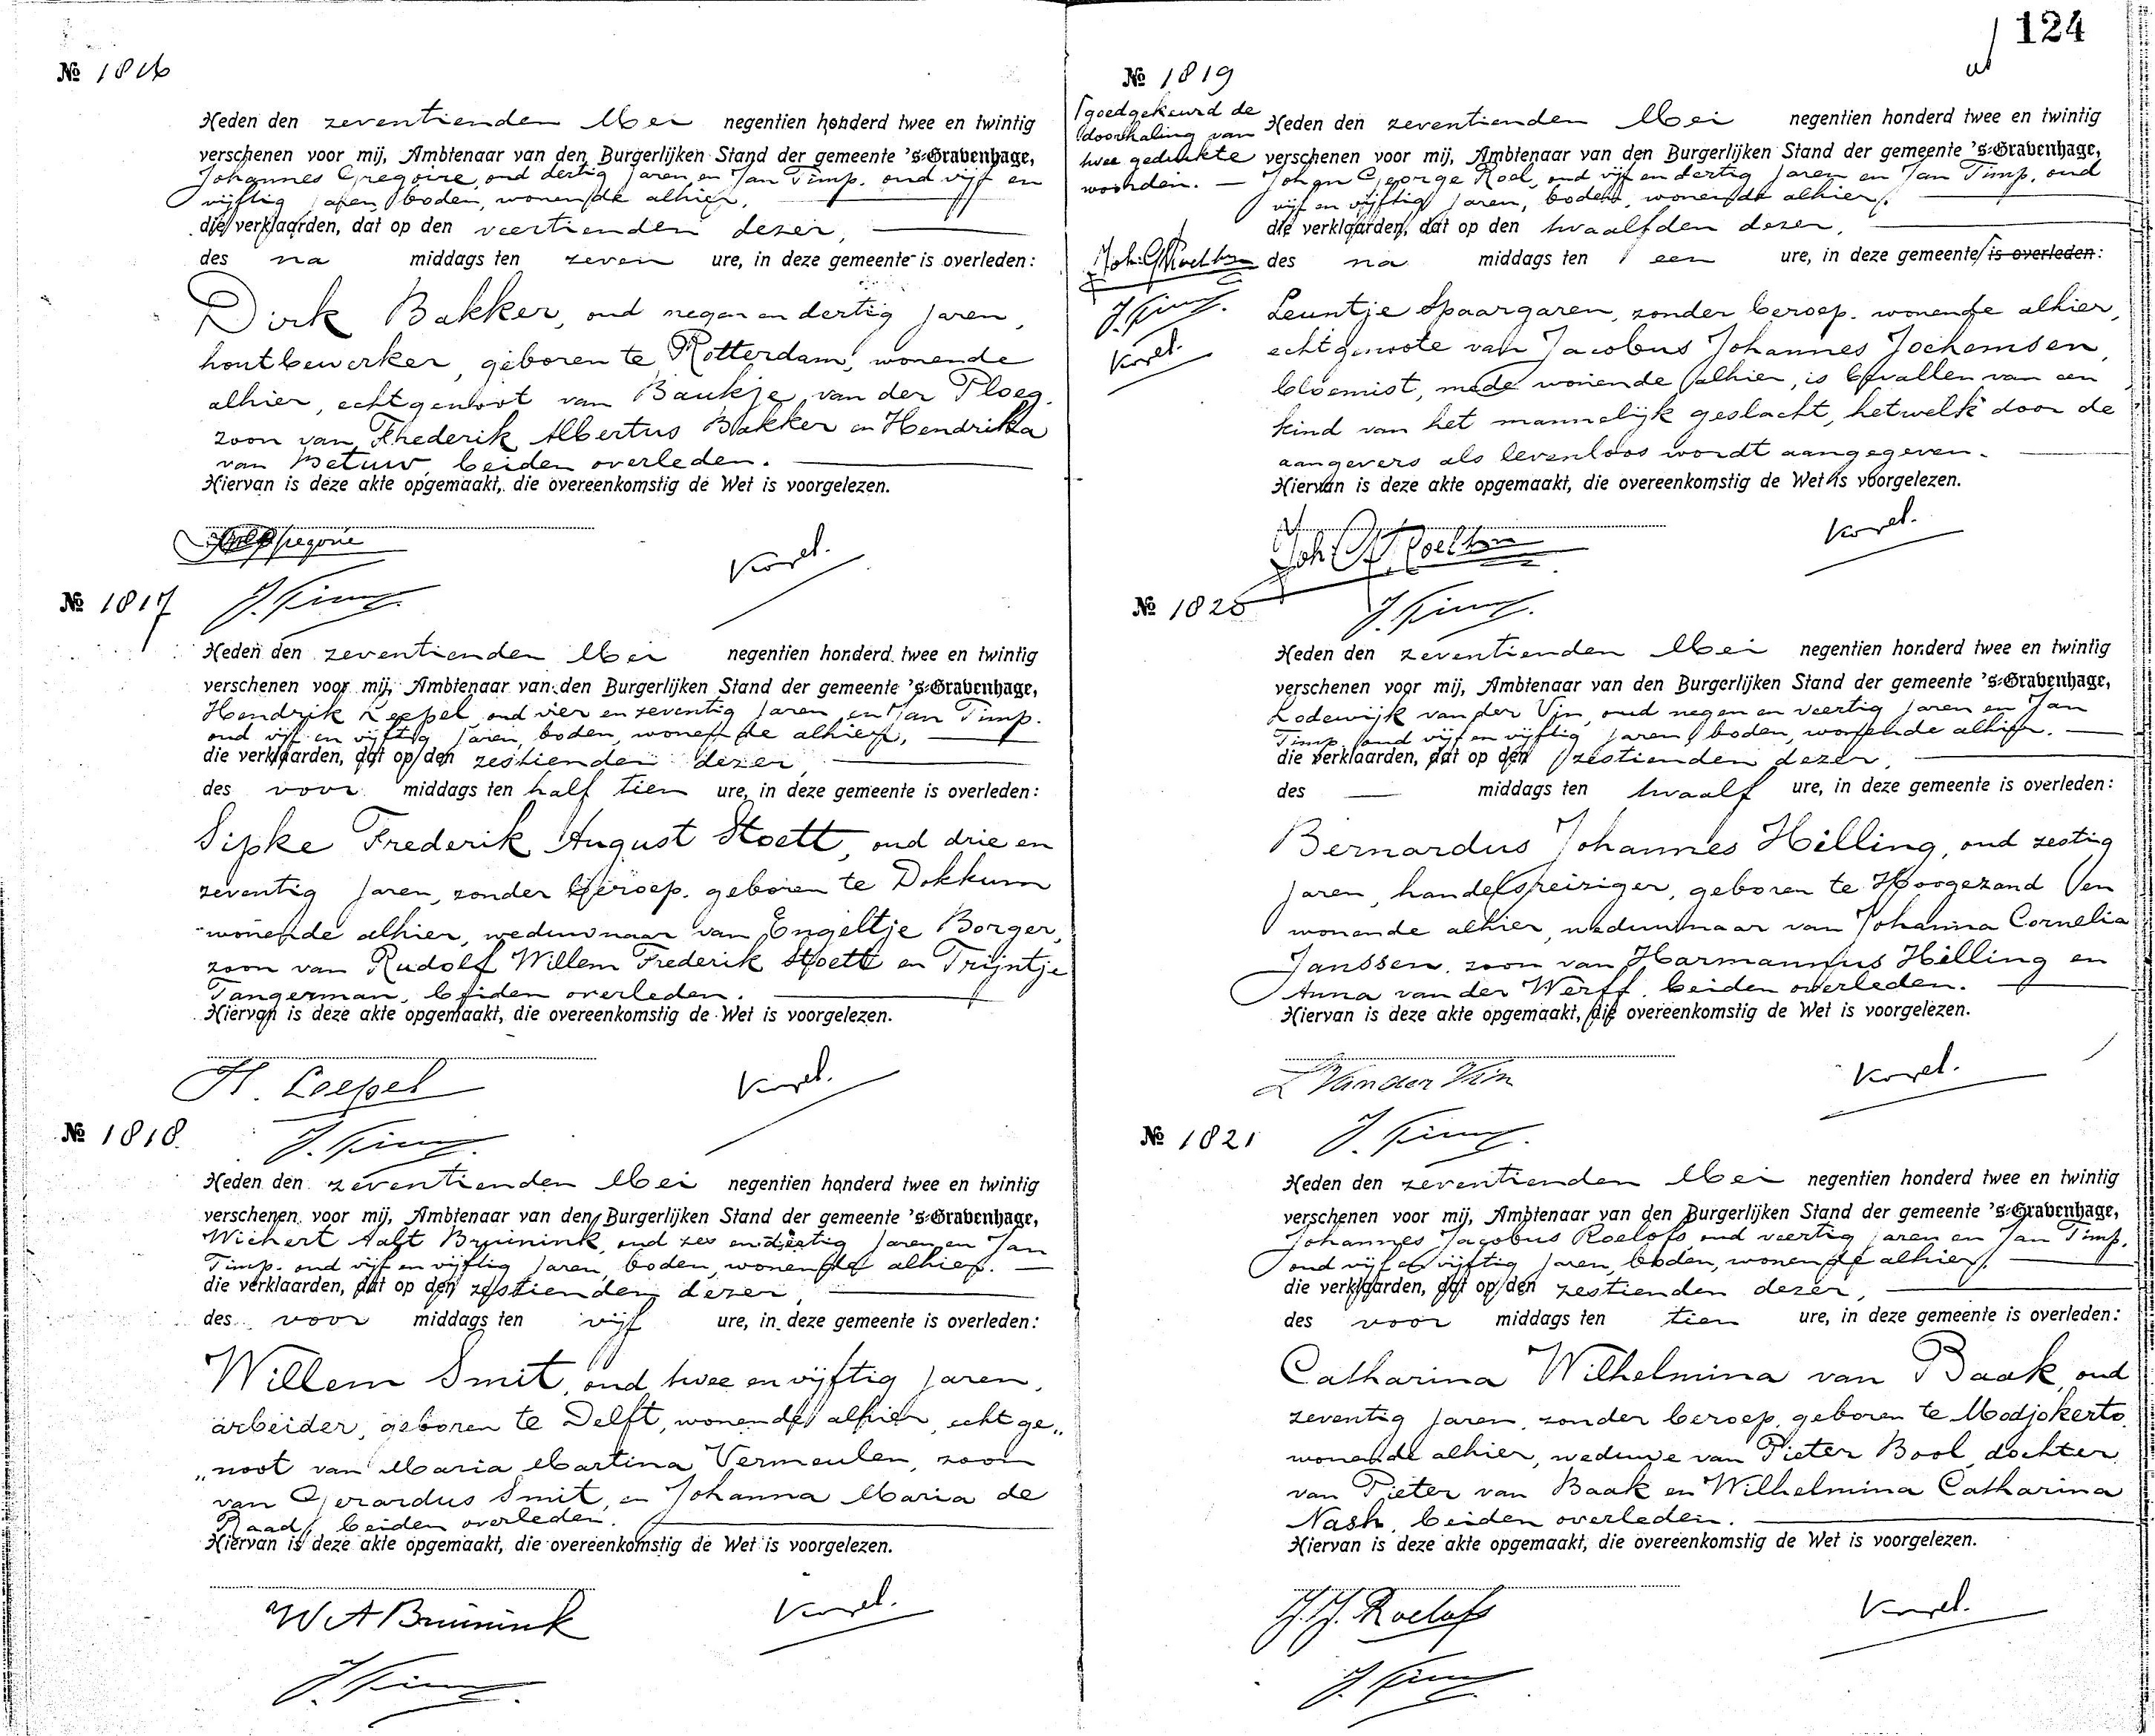 № 1816
Heden den zeventienden Mei negentien honderd twee en twintig
verschenen voor mij, Ambtenaar van den Burgerlijken Stand der gemeente 's-Gravenhage,
Johannes Gregoire, oud dertig jaren en Jan Timp, oud vijf en
vijftig jaren, boden, wonende alhier,
die verklaarden, dat op den veertienden dezer,
des na middags ten zeven ure, in deze gemeente is overleden:
Dirk Bakker, oud negen en dertig jaren,
houtbewerker, geboren te Rotterdam, wonende
alhier, echtgenoot van Baukje van der Ploeg,
zoon van Frederik Albertus Bakker en Hendrika
van Betuw, beiden overleden.
Hiervan is deze akte opgemaakt, die overeenkomstig de Wet is voorgelezen.
Gregoire
J. Timp.
№ 1817
Heden den zeventienden Mei negentien honderd twee en twintig
verschenen voor mij, Ambtenaar van den Burgerlijken Stand der gemeente 's-Gravenhage,
Hendrik Loepel, oud vier en zeventig jaren en Jan Timp.
oud vijf en vijftig jaren, boden, wonende alhier,
die verklaarden, dat op den zestienden dezer,
des voor middags ten half tien ure, in deze gemeente is overleden:
Sipke Frederik August Stoett, oud drie en
zeventig jaren, zonder beroep, geboren te Dokkum
wonende alhier, weduwnaar van Engeltje Borger,
zoon van Rudolf Willem Frederik Stoett en Trijntje
Tangerman, beiden overleden.
Hiervan is deze akte opgemaakt, die overeenkomstig de Wet is voorgelezen.
H. Loepel
J. Timp.
№ 1818.
Heden den zeventienden Mei negentien honderd twee en twintig
verschenen voor mij, Ambtenaar van den Burgerlijken Stand der gemeente 's-Gravenhage,
Wichert Aalt Bruinink, oud zes en dertig jaren en Jan
Timp. oud vijf en vijftig jaren, boden, wonende alhier.
die verklaarden, dat op den zestienden dezer,
des voor middags ten vijf ure, in deze gemeente is overleden:
Willem Smit, oud twee en vijftig jaren,
arbeider, geboren te Delft, wonende alhier, echtge„
„noot van Maria Martina Vermeulen, zoon
van Gerardus Smit, en Johanna Maria de
Raad, beiden overleden.
Hiervan is deze akte opgemaakt, die overeenkomstig de Wet is voorgelezen.
W A Bruinink
J. Timp.
124
№ 1819
goedgekeurd de
doorhaling van
twee gedrukte
woorden. —
J. Timp.
Heden den zeventienden Mei negentien honderd twee en twintig
verschenen voor mij, Ambtenaar van den Burgerlijken Stand der gemeente 's-Gravenhage,
Johan George Roel, oud vijf en dertig jaren en Jan Timp, oud
vijf en vijftig jaren, boden, wonende alhier,
die verklaarden, dat op den twaalfden dezer,
des na middags ten een ure, in deze gemeente is overleden:
Leuntje Spaargaren, zonder beroep, wonende alhier,
echtgenoote van Jacobus Johannes Jochemsen,
bloemist, mede wonende alhier, is bevallen van een
kind van het mannelijk geslacht, hetwelk door de
aangevers als levenloos wordt aangegeven.
Hiervan is deze akte opgemaakt, die overeenkomstig de Wet is voorgelezen.
J. Timp.
№ 1820
Heden den zeventienden Mei negentien honderd twee en twintig
verschenen voor mij, Ambtenaar van den Burgerlijken Stand der gemeente 's-Gravenhage,
Lodewijk van der Vijn, oud negen en veertig jaren en Jan
Timp, oud vijf en vijftig jaren, boden, wonende alhier.
die verklaarden, dat op den zestienden dezer,
des — middags ten twaalf ure, in deze gemeente is overleden:
Bernardus Johannes Hilling, oud zestig
jaren, handelsreiziger, geboren te Hoogezand en
wonende alhier, weduwnaar van Johanna Cornelia
Janssen, zoon van Harmannus Hilling en
Anna van der Werff, beiden overleden.
Hiervan is deze akte opgemaakt, die overeenkomstig de Wet is voorgelezen.
L Van der Vijn
J. Timp.
№ 1821
Heden den zeventienden Mei negentien honderd twee en twintig
verschenen voor mij, Ambtenaar van den Burgerlijken Stand der gemeente 's-Gravenhage,
Johannes Jacobus Roelofs oud veertig jaren en Jan Timp,
oud vijf en vijftig jaren, boden, wonende alhier,
die verklaarden, dat op den zestienden dezer,
des voor middags ten tien ure, in deze gemeente is overleden:
Catharina Wilhelmina van Baak, oud
zeventig jaren, zonder beroep, geboren te Modjokerto,
wonende alhier, weduwe van Pieter Bool, dochter
van Pieter van Baak en Wilhelmina Catharina
Nash, beiden overleden.
Hiervan is deze akte opgemaakt, die overeenkomstig de Wet is voorgelezen.
J. J. Roelofs
J. Timp.